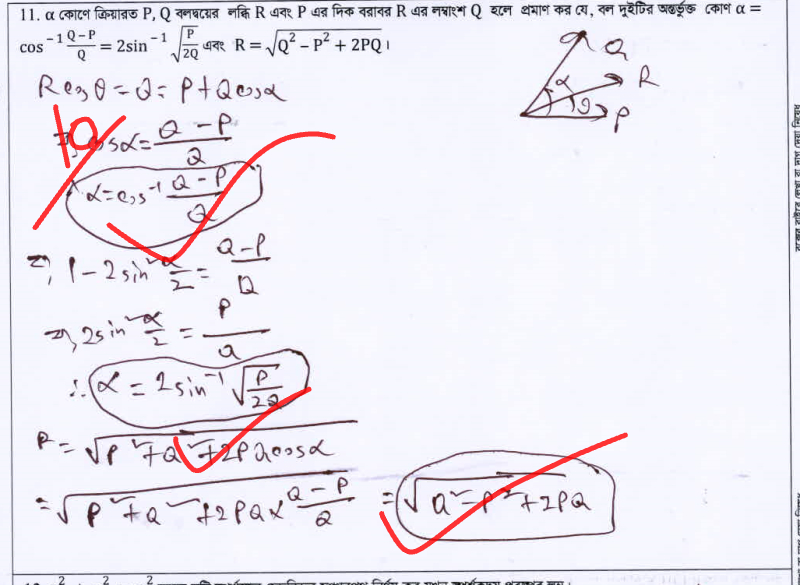 11. α কোণে ক্রিয়ারত P, Q বলদ্বয়ের লব্ধি R এবং P এর দিক বরাবর R এর লম্বাংশ Q হলে প্রমাণ কর যে, বল দুইটির অন্তর্ভুক্ত কোণ α =
cos⁻¹ (Q−P)/Q = 2sin⁻¹ √(P/2Q) এবং R = √(Q² − P² + 2PQ)।
Q
α
R
θ
P
R cosθ = Q = P + Q cosα
10
⇒, cosα = (Q − P)/Q
α = cos⁻¹ (Q − P)/Q
⇒, 1 − 2sin² α/2 = (Q−P)/Q
⇒, 2sin² α/2 = P/Q
∴ α = 2sin⁻¹ √(P/2Q)
R = √(P² + Q² + 2PQ cosα)
= √(P² + Q² + 2PQ × (Q − P)/Q) = √(Q² − P² + 2PQ)